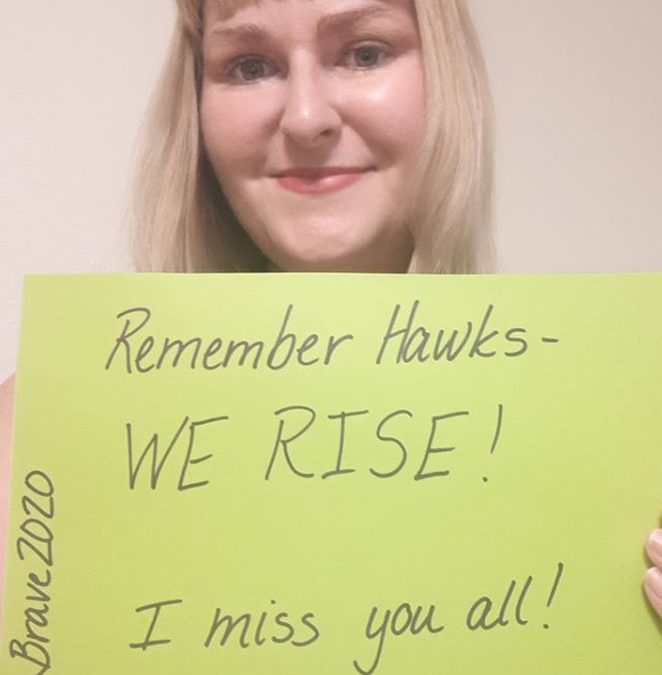 Remember Hawks-
WE RISE!
I miss you all!
Brave2020